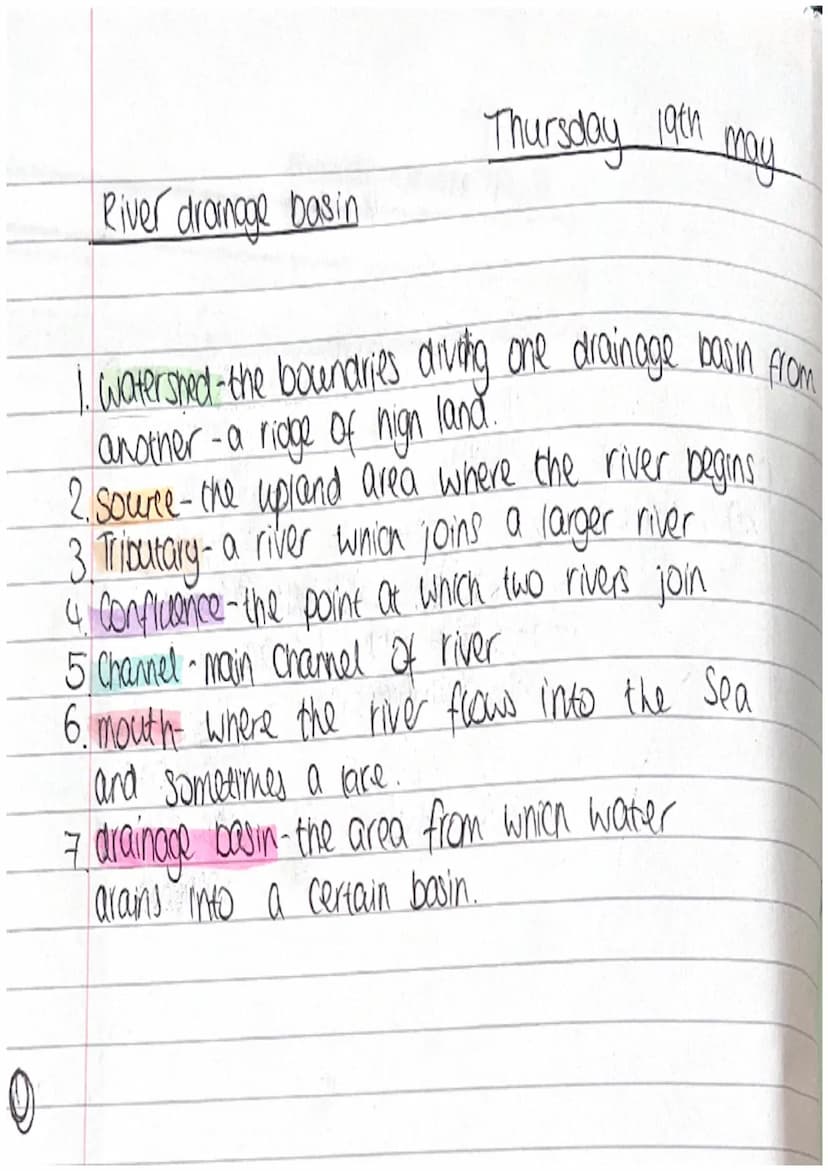 Thursday 19th may
River drainage basin
1. Watershed-the boundaries dividing one drainage basin from
another - a ridge of high land.
2. Source - the upland area where the river begins
3. Tributary - a river which joins a larger river
4. Confluence - the point at which two rivers join
5 Channel - main Channel of river
6. mouth- where the river flows into the sea
and sometimes a lake.
7. drainage basin - the area from which water
drains into a certain basin.